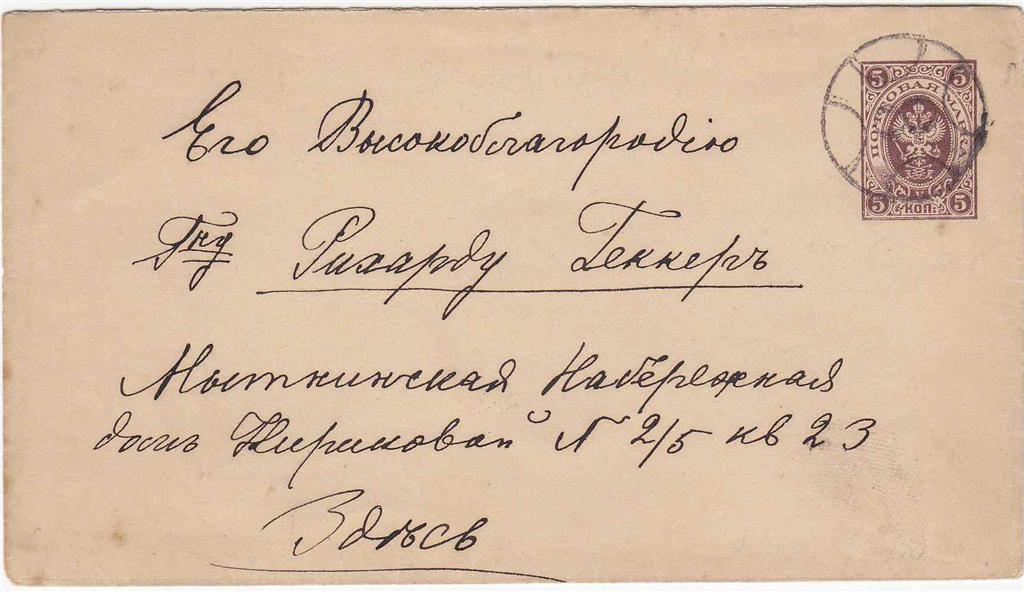 5 5
ПОЧТОВАЯ МАРКА
5 КОП. 5
Его Высокоблагородію
Гну Рихарду Геккеръ
Мытнинская Набережная
домъ Кириковой N 2/5 кв 23
Здѣсь